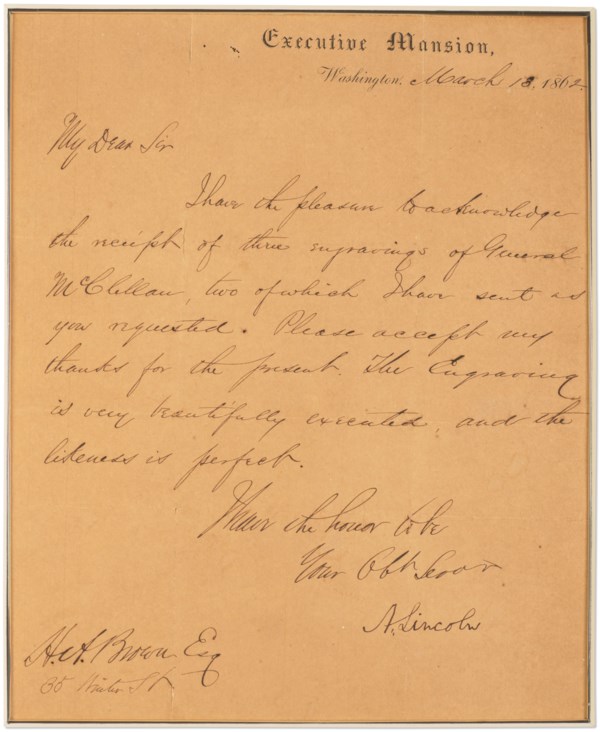 Executive Mansion,
Washington, March 13, 1862.
My Dear Sir
I have the pleasure to acknowledge
the receipt of three engravings of General
McClellan, two of which I have sent as
you requested. Please accept my
thanks for the present. The Engraving
is very beautifully executed, and the
likeness is perfect.
I have the honor to be
Your Obt. Servt
A. Lincoln
H. A. Brown Esq
35 Winter St